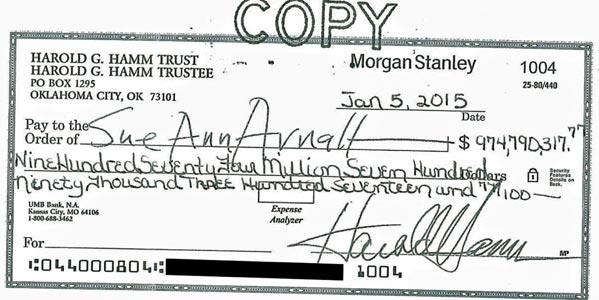 COPY
HAROLD G. HAMM TRUST
HAROLD G. HAMM TRUSTEE
PO BOX 1295
OKLAHOMA CITY, OK 73101
Morgan Stanley
1004
25-80/440
Jan 5, 2015
Date
Pay to the
Order of Sue Ann Arnall $ 974,790,317.77
Nine Hundred Seventy Four Million Seven Hundred Dollars
Ninety Thousand Three Hundred Seventeen and 77/100
Security
Features
Details on
Back.
UMB Bank, N.A.
Kansas City, MO 64106
1-800-688-3462
Expense
Analyzer
For
Harold Hamm
MP
⑆044000804⑆ 1004